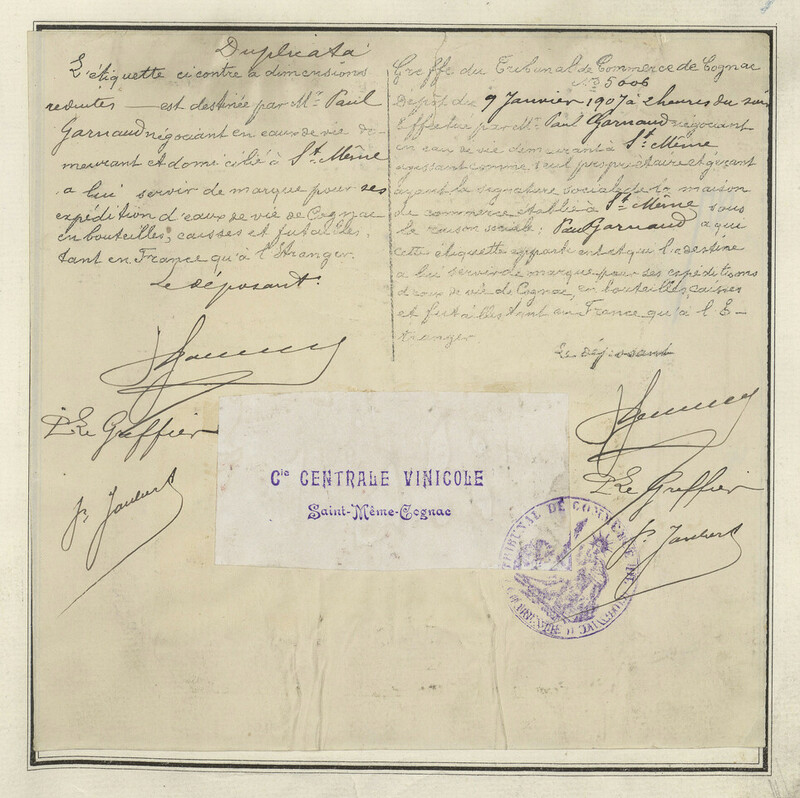 Duplicata
L'étiquette ci contre a dimensions
reduites — est destinée par Mr. Paul
Garnaud négociant en eaux de vie de-
meurant et domicilié à St. Même
a lui servir de marque pour ses
expédition d'eaux de vie de Cognac
en bouteilles, caisses et futailles,
tant en France qu'à l'Etranger.
Le déposant.
Pr Le Greffier
Greffe du Tribunal de Commerce de Cognac
No 5006
Dépôt du 9 Janvier 1907 à heures du soir
Effectué par Mr. Paul Garnaud négociant
en eau de vie demeurant à St. Même
agissant comme seul propriétaire et gérant
ayant la signature sociale de la maison
de commerce établie à St. Même sous
la raison sociale: Paul Garnaud a qui
cette étiquette appartient et qui l'a destine
a lui servir de marque pour ses expéditions
d'eaux de vie de Cognac, en bouteilles, caisses
et futailles tant en France qu'à l'E-
tranger
Le déposant
Pr Le Greffier
Cie CENTRALE VINICOLE
Saint-Même-Cognac
TRIBUNAL DE COMMERCE DE COGNAC